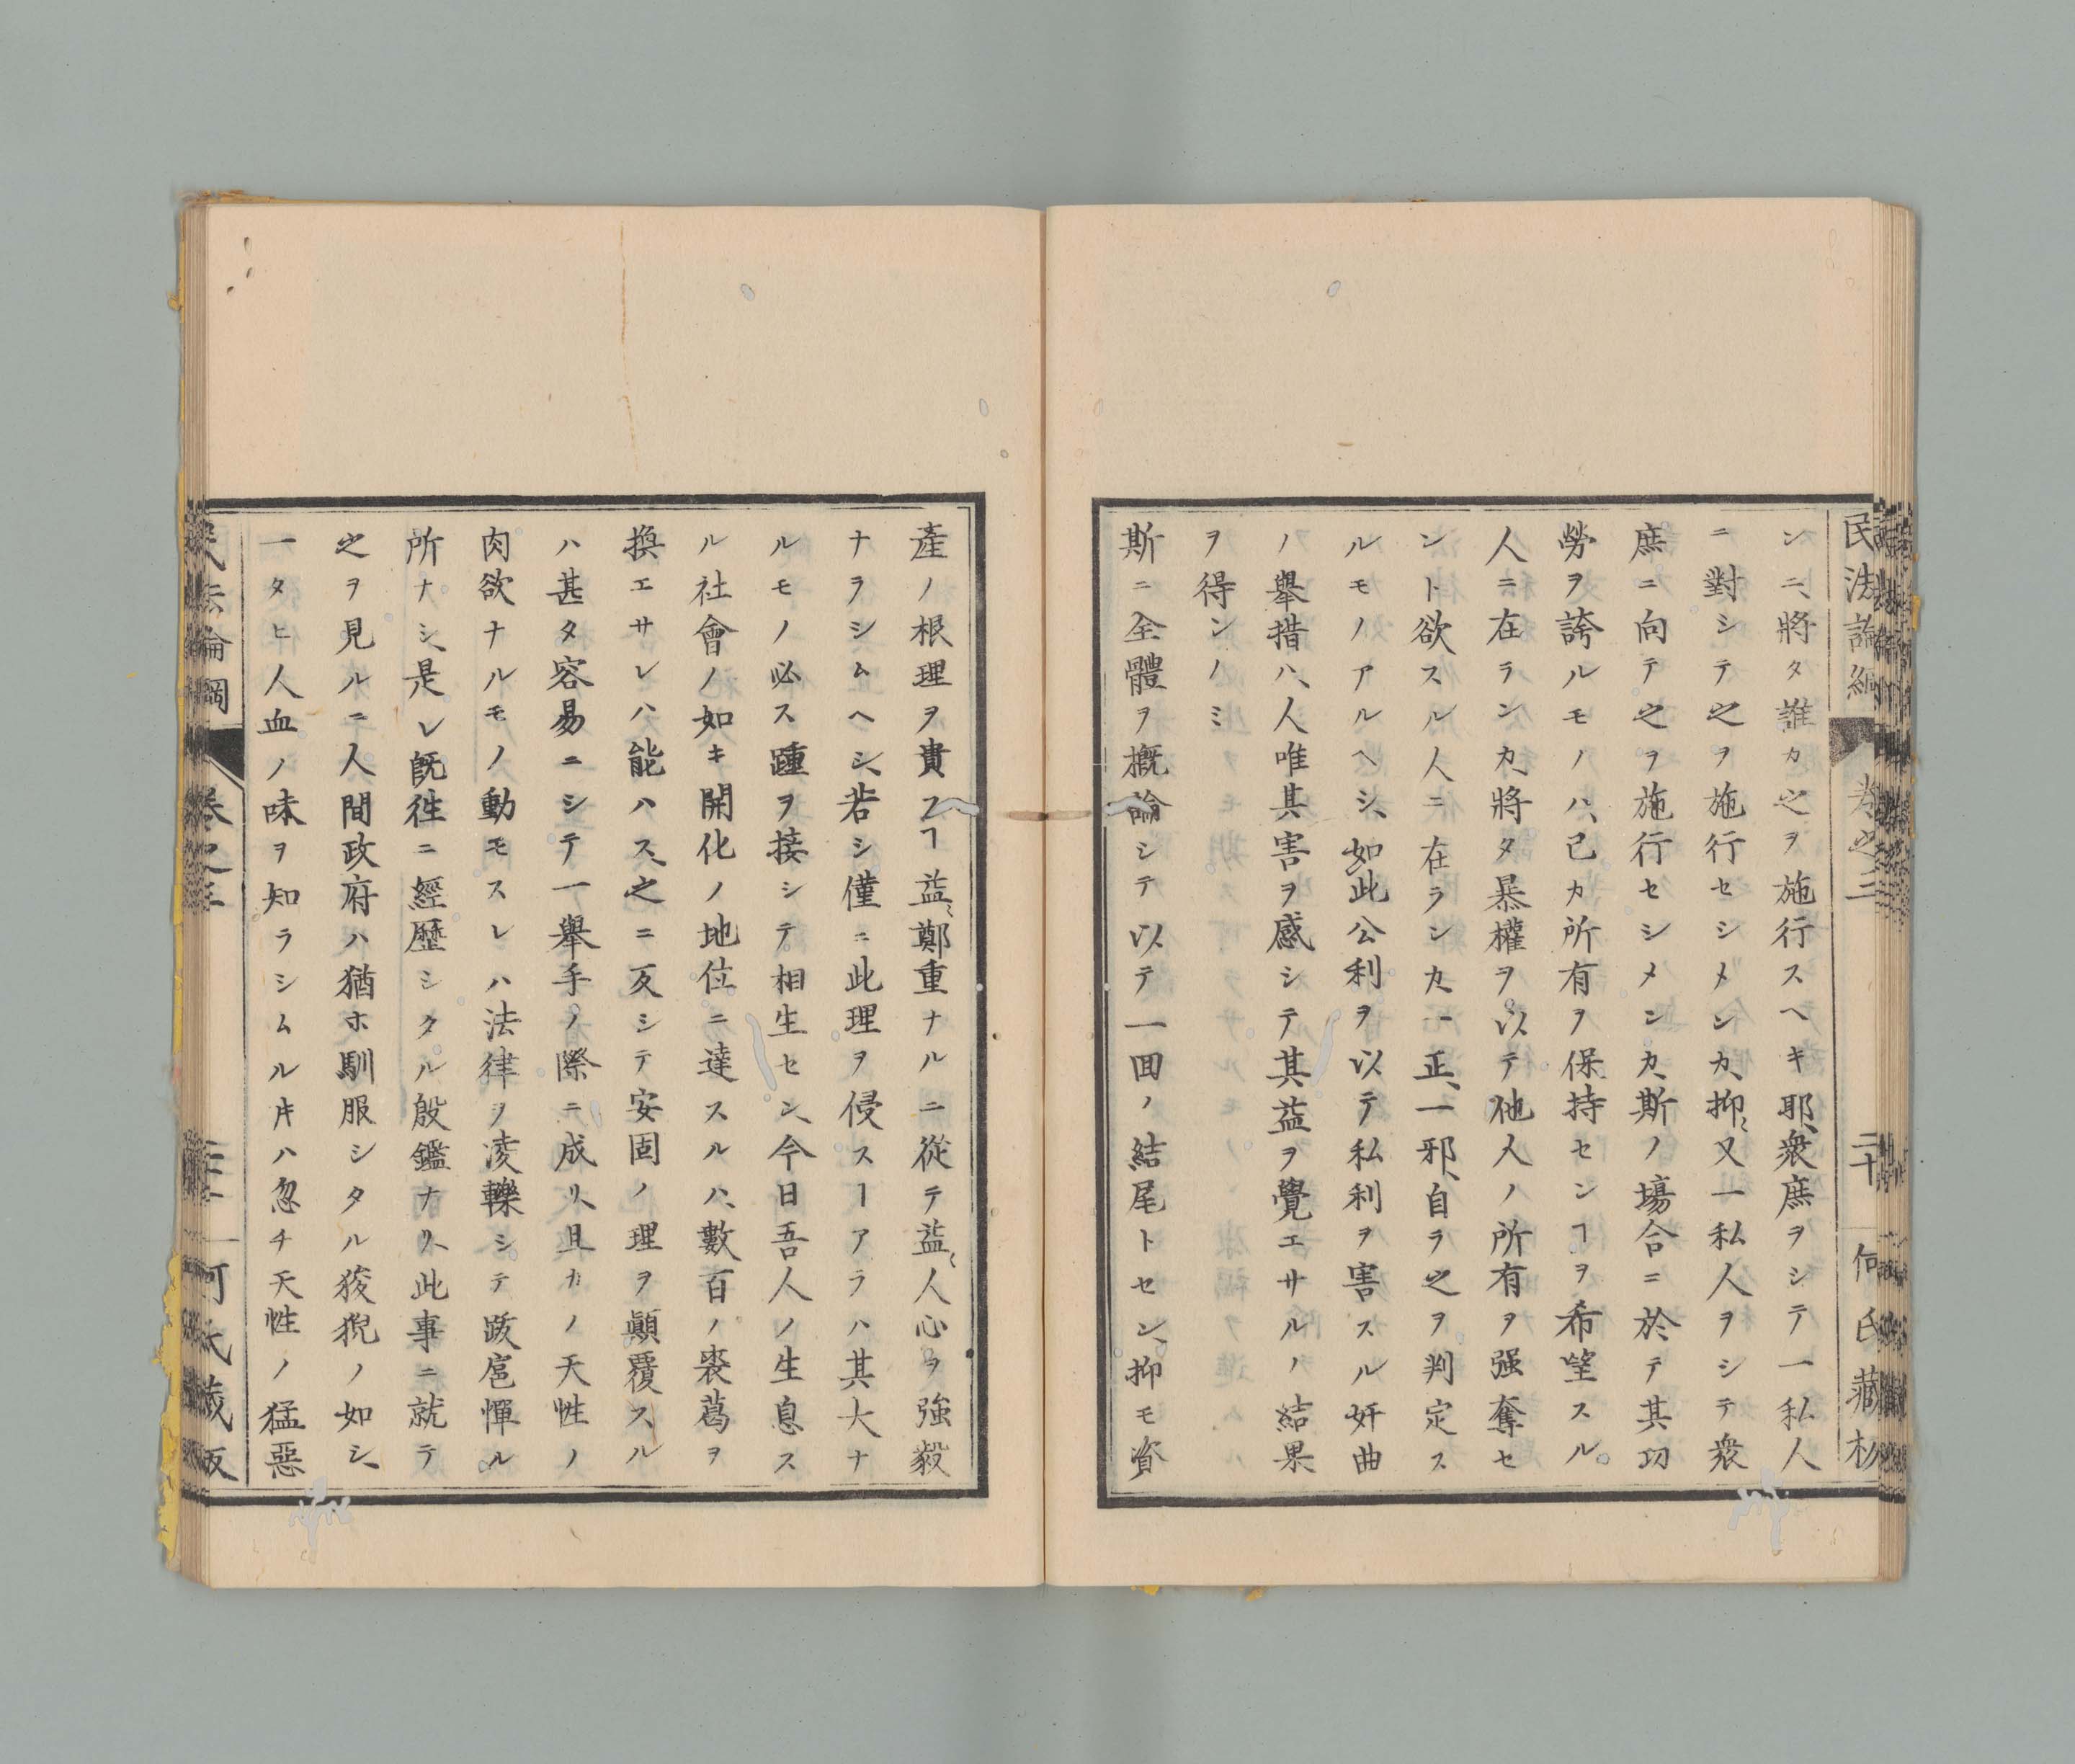 民法論綱 卷之三 二十 何氏藏板
ンニ、將タ誰カ之ヲ施行スヘキ耶、衆庶ヲシテ一私人
ニ對シテ之ヲ施行セシメンカ、抑〻又一私人ヲシテ衆
庶ニ向テ之ヲ施行セシメンカ、斯ノ塲合ニ於テ其功
勞ヲ誇ルモノハ、己カ所有ヲ保持センヿヲ希望スル
人ニ在ランカ、將タ暴權ヲ以テ他人ノ所有ヲ强奪セ
ント欲スル人ニ在ランカ、一正、一邪、自ラ之ヲ判定ス
ルモノアルヘシ、如此公利ヲ以テ私利ヲ害スル奸曲
ノ舉措ハ、人唯其害ヲ感シテ其益ヲ覺エサルノ結果
ヲ得ンノミ
斯ニ全體ヲ概論シテ以テ一囬ノ結尾トセン、抑モ資
產ノ根理ヲ貴フヿ益〻鄭重ナルニ從テ益〻人心ヲ強毅
ナラシムヘシ、若シ僅ニ此理ヲ侵スヿアラハ其大ナ
ルモノ必ス踵ヲ接シテ相生セン、今日吾人ノ生息ス
ル社會ノ如キ開化ノ地位ニ達スルハ、數百ノ裘葛ヲ
換エサレハ能ハス、之ニ反シテ安固ノ理ヲ顚覆スル
ハ甚タ容易ニシテ一舉手ノ際ニ成リ、且カノ天性ノ
肉欲ナルモノ動モスレハ法律ヲ凌轢シテ跋扈憚ル
所ナシ、是レ旣徃ニ經歷シタル殷鑑ナリ、此事ニ就テ
之ヲ見ルニ人間政府ハ猶ホ馴服シタル狻猊ノ如シ、
一タヒ人血ノ味ヲ知ラシムル𪜈ハ忽チ天性ノ猛惡
民法論綱 卷之三 何氏藏板